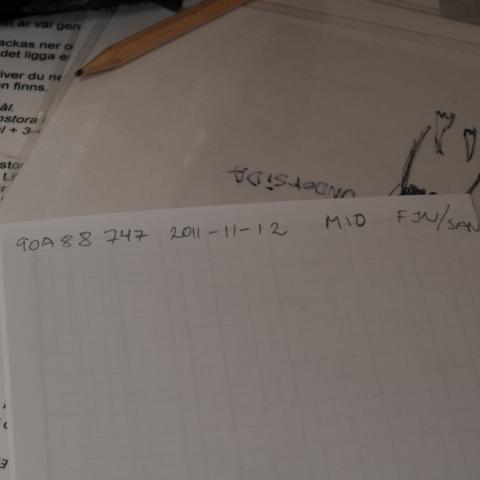 et är väl gen
ackas ner o
det ligga e
iver du ne
en finns.
ål.
pstora
l + 3-
UNDERSIDA
90A88 747 2011-11-12 M10 FJN/SAN